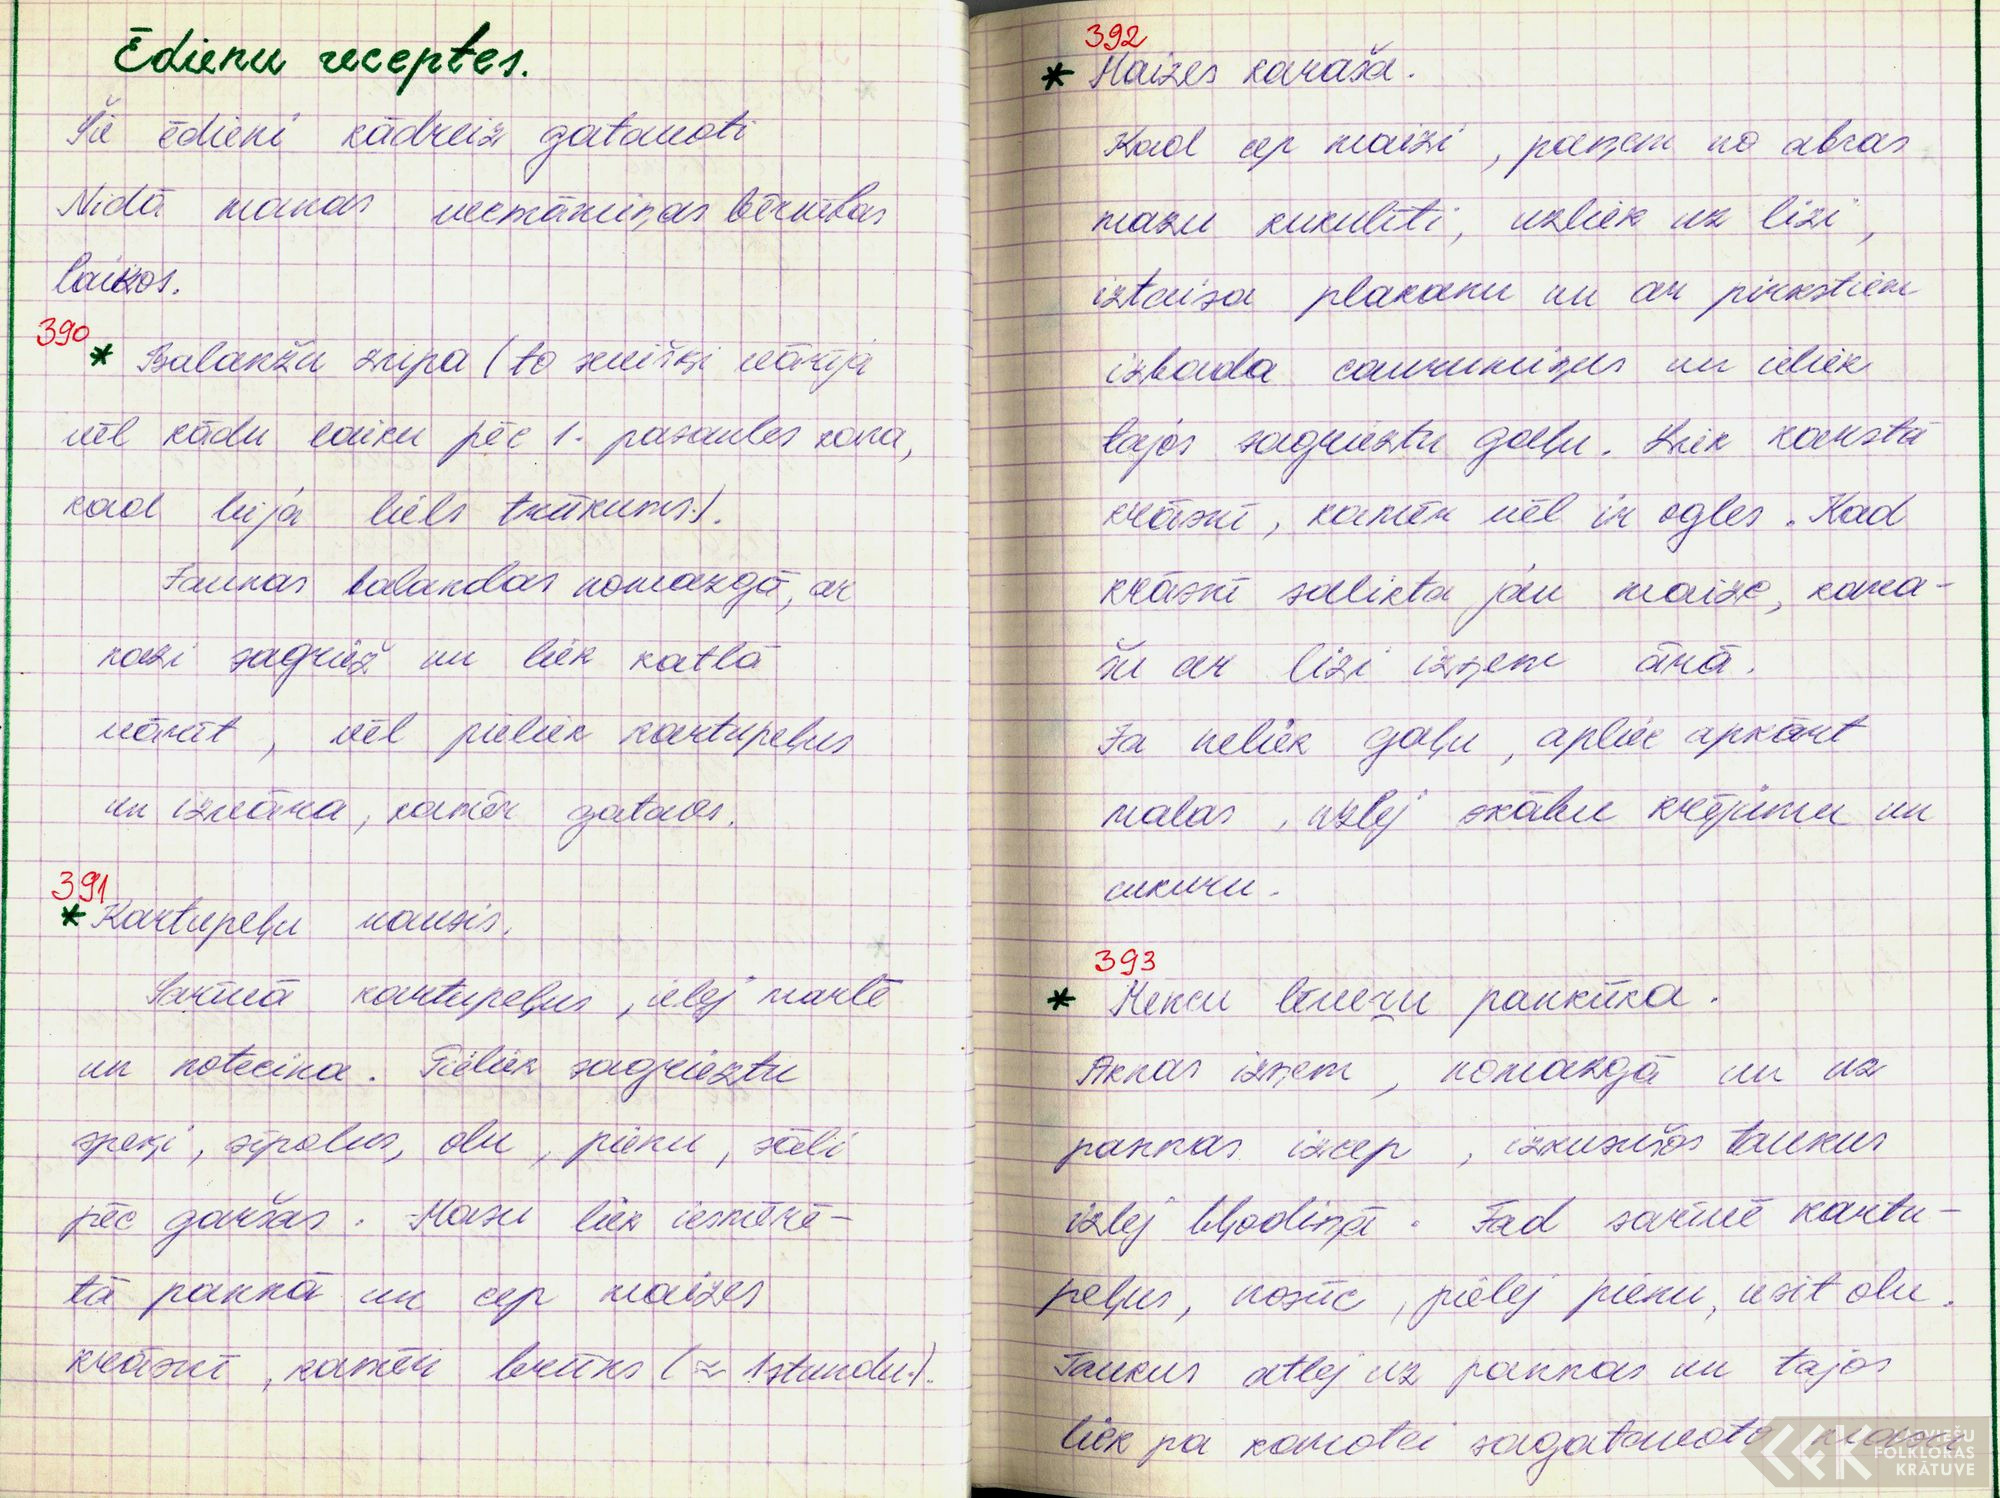 Ēdienu receptes.
Šie ēdieni kādreiz gatavoti
Nidā manas vecmāmiņas bērnības
laikos.
390
* Balanžu zupa (to sevišķi vārīja
vēl kādu laiku pēc 1. pasaules kara,
kad bija liels trūkums.).
Jaunas balandas nomazgā, ar
nazi sagriež un liek katlā
vārīt, vēl pieliek kartupeļus
un izvāra, kamēr gatavs.
391
* Kartupeļu nausis.
Sarīvā kartupeļus, ielej marlē
un notecina. Pieliek sagrieztu
speķi, sīpolus, olu, pienu, sāli
pēc garšas. Masu liek iesmērē-
tā pannā un cep maizes
krāsnī, kamēr brūns (≈ 1 stundu.).
392
* Maizes karaša.
Kad cep maizi, paņem no abras
mazu kukulīti, uzliek uz lizi,
iztaisa plakanu un ar pirkstiem
izbada caurumiņus un ieliek
tajos sagrieztu gaļu. Liek karstā
krāsnī, kamēr vēl ir ogles. Kad
krāsnī salikta jau maize, kara-
šu ar lizi izņem ārā.
Ja neliek gaļu, apliec apkārt
malas, uzlej skābu krējumu un
cukuru.
393
* Mencu butes pankūka.
Aknas izņem, nomazgā un uz
pannas izcep, izkusušos taukus
izlej bļodiņā. Tad sarīvē kartu-
peļus, nosūc, pielej pienu, iesit olu.
Taukus atlej uz pannas un tajos
liek pa karotei sagatavoto masu
LATVIEŠU
FOLKLORAS
KRĀTUVE